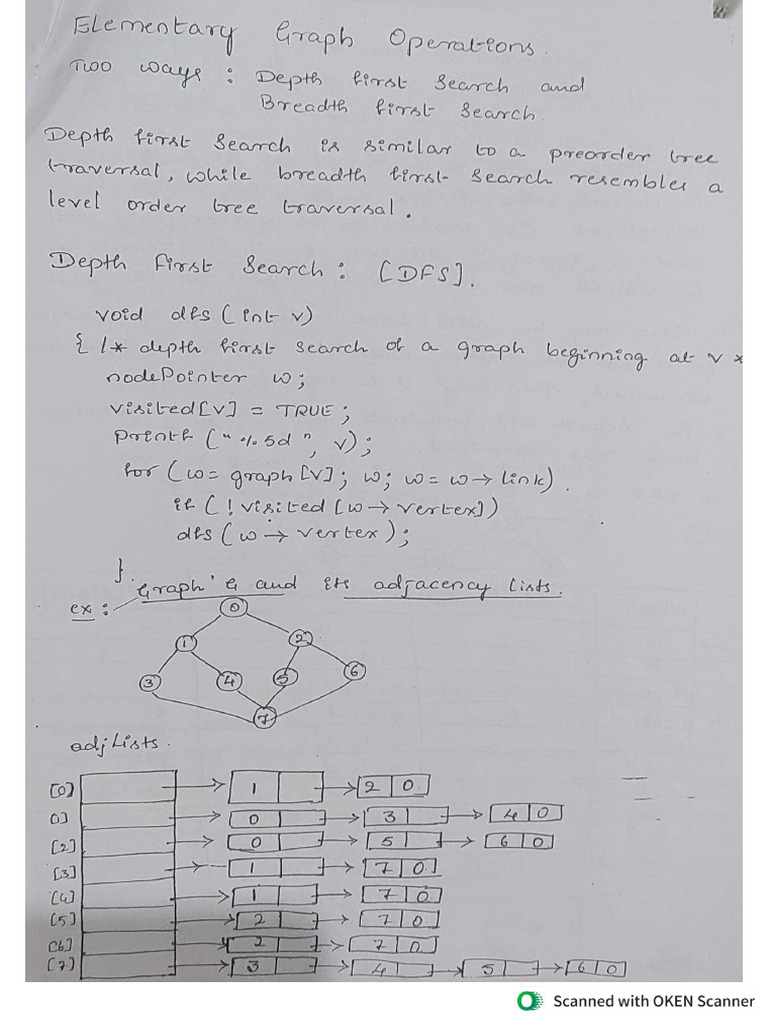 Elementary Graph Operations.
Two ways : Depth first search and
Breadth first search.
Depth first search is similar to a preorder tree
traversal, while breadth first search resembles a
level order tree traversal.
Depth First Search : [DFS].
void dfs (int v)
{ /* depth first search of a graph beginning at v *
nodePointer w;
visited[v] = TRUE;
printf (" %5d ", v);
for (w = graph[v]; w; w = w → link).
if (! visited [w → vertex])
dfs (w → vertex);
}.
Graph 'G and its adjacency lists.
ex :
0
1 2
3 4 5 6
7
adjLists.
[0] 1 2 0
[1] 0 3 4 0
[2] 0 5 6 0
[3] 1 7 0
[4] 1 7 0
[5] 2 7 0
[6] 2 7 0
[7] 3 4 5 6 0
Scanned with OKEN Scanner